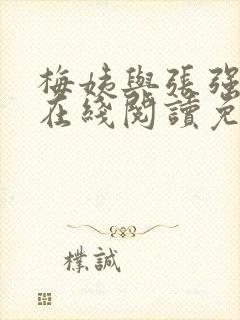 梅姨與張强
在綫閱讀免
樸誠